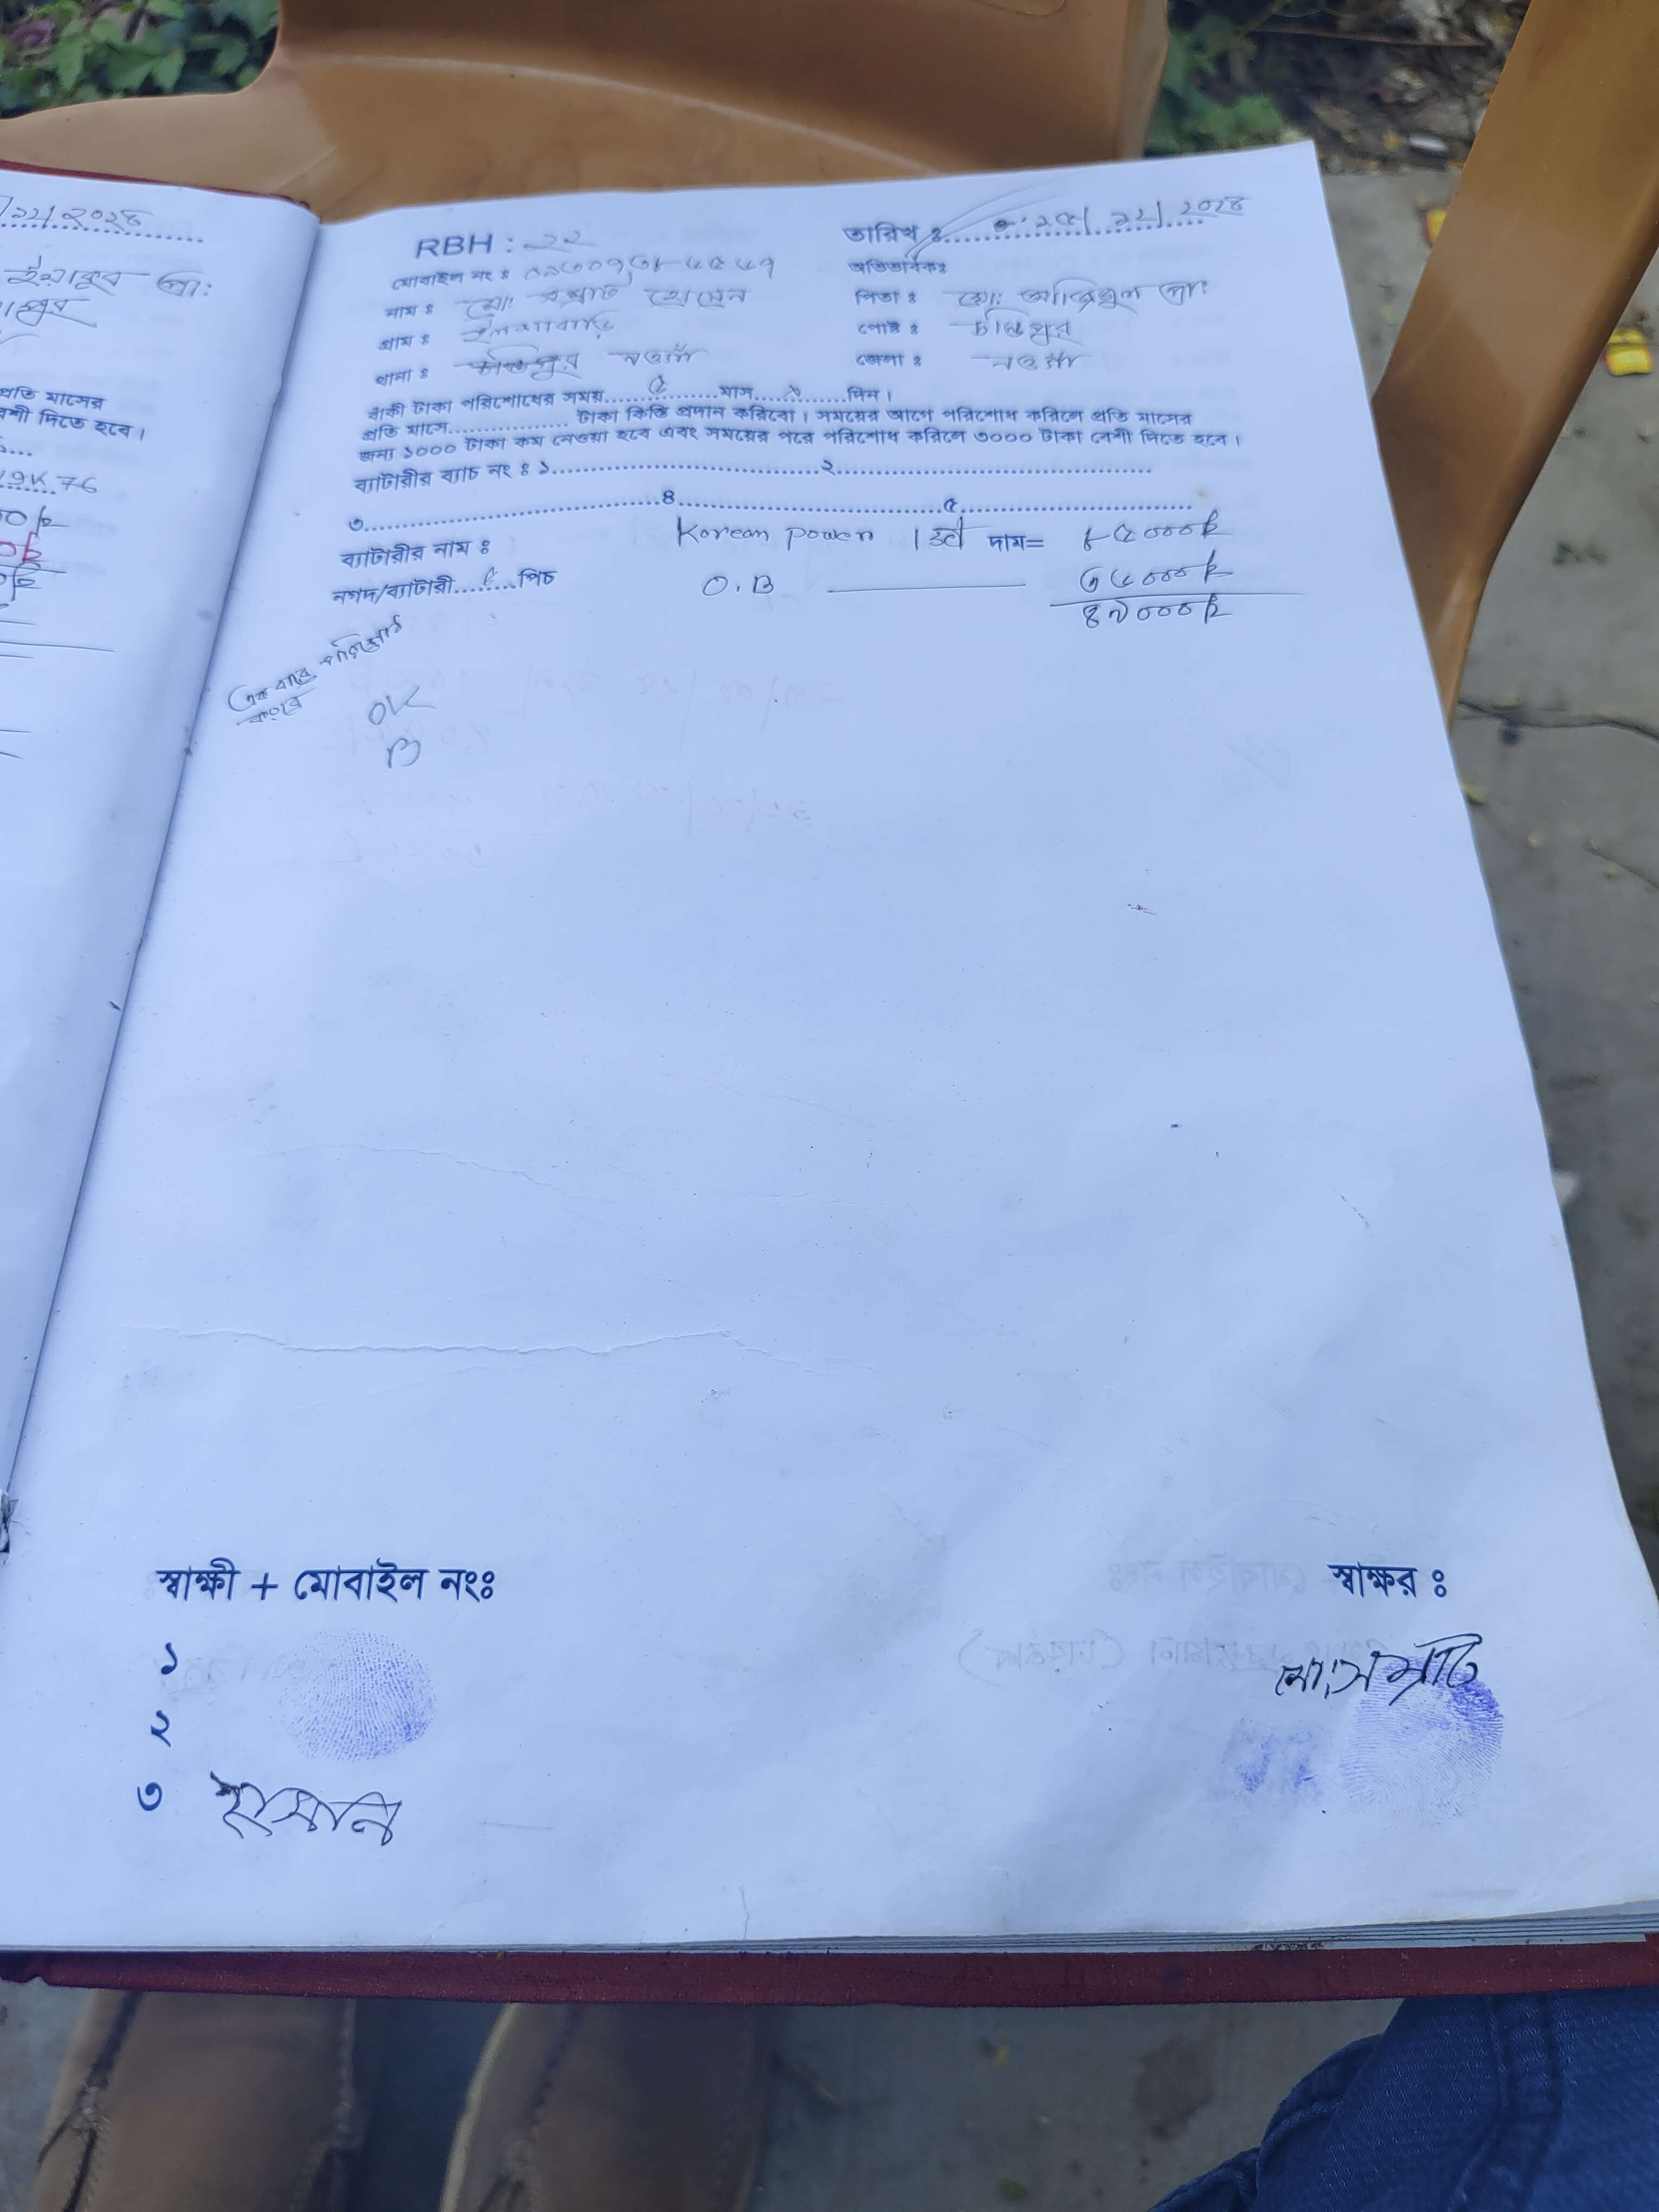 /১২/২০২৪
ইয়াকুব প্রা:
প্রতি মাসের
বেশী দিতে হবে।
19K 76
RBH : ২২
তারিখ ঃ ২৫/ ১২/ ২০২৪
মোবাইল নং ঃ
অভিভাবকঃ
নাম ঃ মো: সম্রাট হোসেন
পিতা ঃ মো:
গ্রাম ঃ
পোষ্ট ঃ চন্ডিপুর
থানা ঃ চন্ডিপুর নওগাঁ
জেলা ঃ নওগাঁ
বাকী টাকা পরিশোধের সময়......৫......মাস............দিন।
প্রতি মাসে.................. টাকা কিস্তি প্রদান করিবো। সময়ের আগে পরিশোধ করিলে প্রতি মাসের
জন্য ১০০০ টাকা কম নেওয়া হবে এবং সময়ের পরে পরিশোধ করিলে ৩০০০ টাকা বেশী দিতে হবে।
ব্যাটারীর ব্যাচ নং ঃ ১........................................২........................................
৩........................................৪........................................৫........................................
ব্যাটারীর নাম ঃ Korean power 1 সেট দাম= ৮৫০০০৳
নগদ/ব্যাটারী.....৫.....পিচ O.B ৩৬০০০৳
৪৯০০০৳
এক বারে পরিশোধ
করবে
OK
B
স্বাক্ষী + মোবাইল নংঃ
স্বাক্ষর ঃ
১
মো: সম্রাট
২
৩